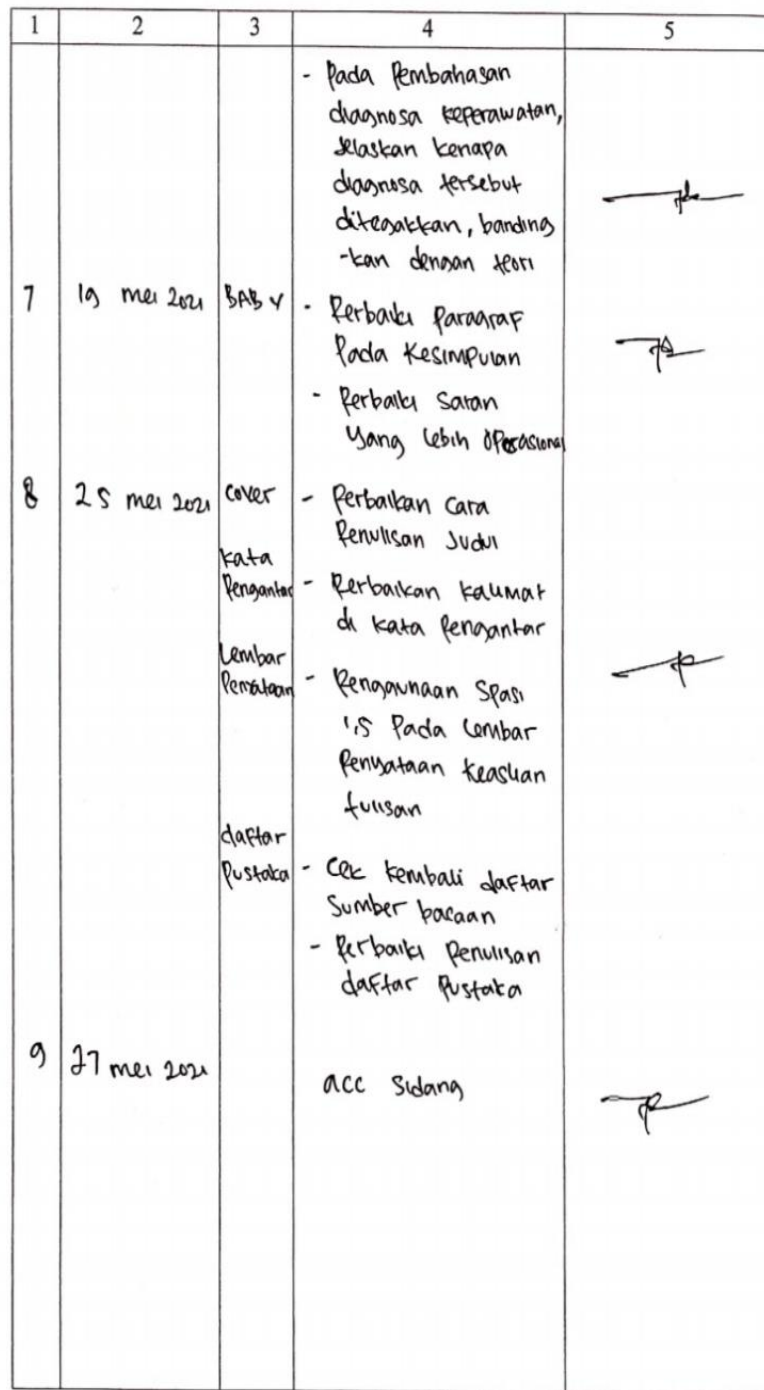 1 2 3 4 5
- Pada Pembahasan
diagnosa keperawatan,
Jelaskan kenapa
diagnosa tersebut
ditegakkan, banding
-kan dengan teori
7 19 mei 2021 BAB V - Perbaiki Paragraf
Pada Kesimpulan
- Perbaiki Saran
Yang lebih operasional
8 25 mei 2021 cover - Perbaikan Cara
Penulisan Judul
kata
Pengantar - Perbaikan kalimat
di kata Pengantar
Lembar
Pernyataan - Penggunaan Spasi
1,5 Pada Lembar
Penyataan Keaslian
tulisan
daftar
Pustaka - Cek kembali daftar
Sumber bacaan
- Perbaiki Penulisan
daftar Pustaka
9 27 mei 2021
acc Sidang